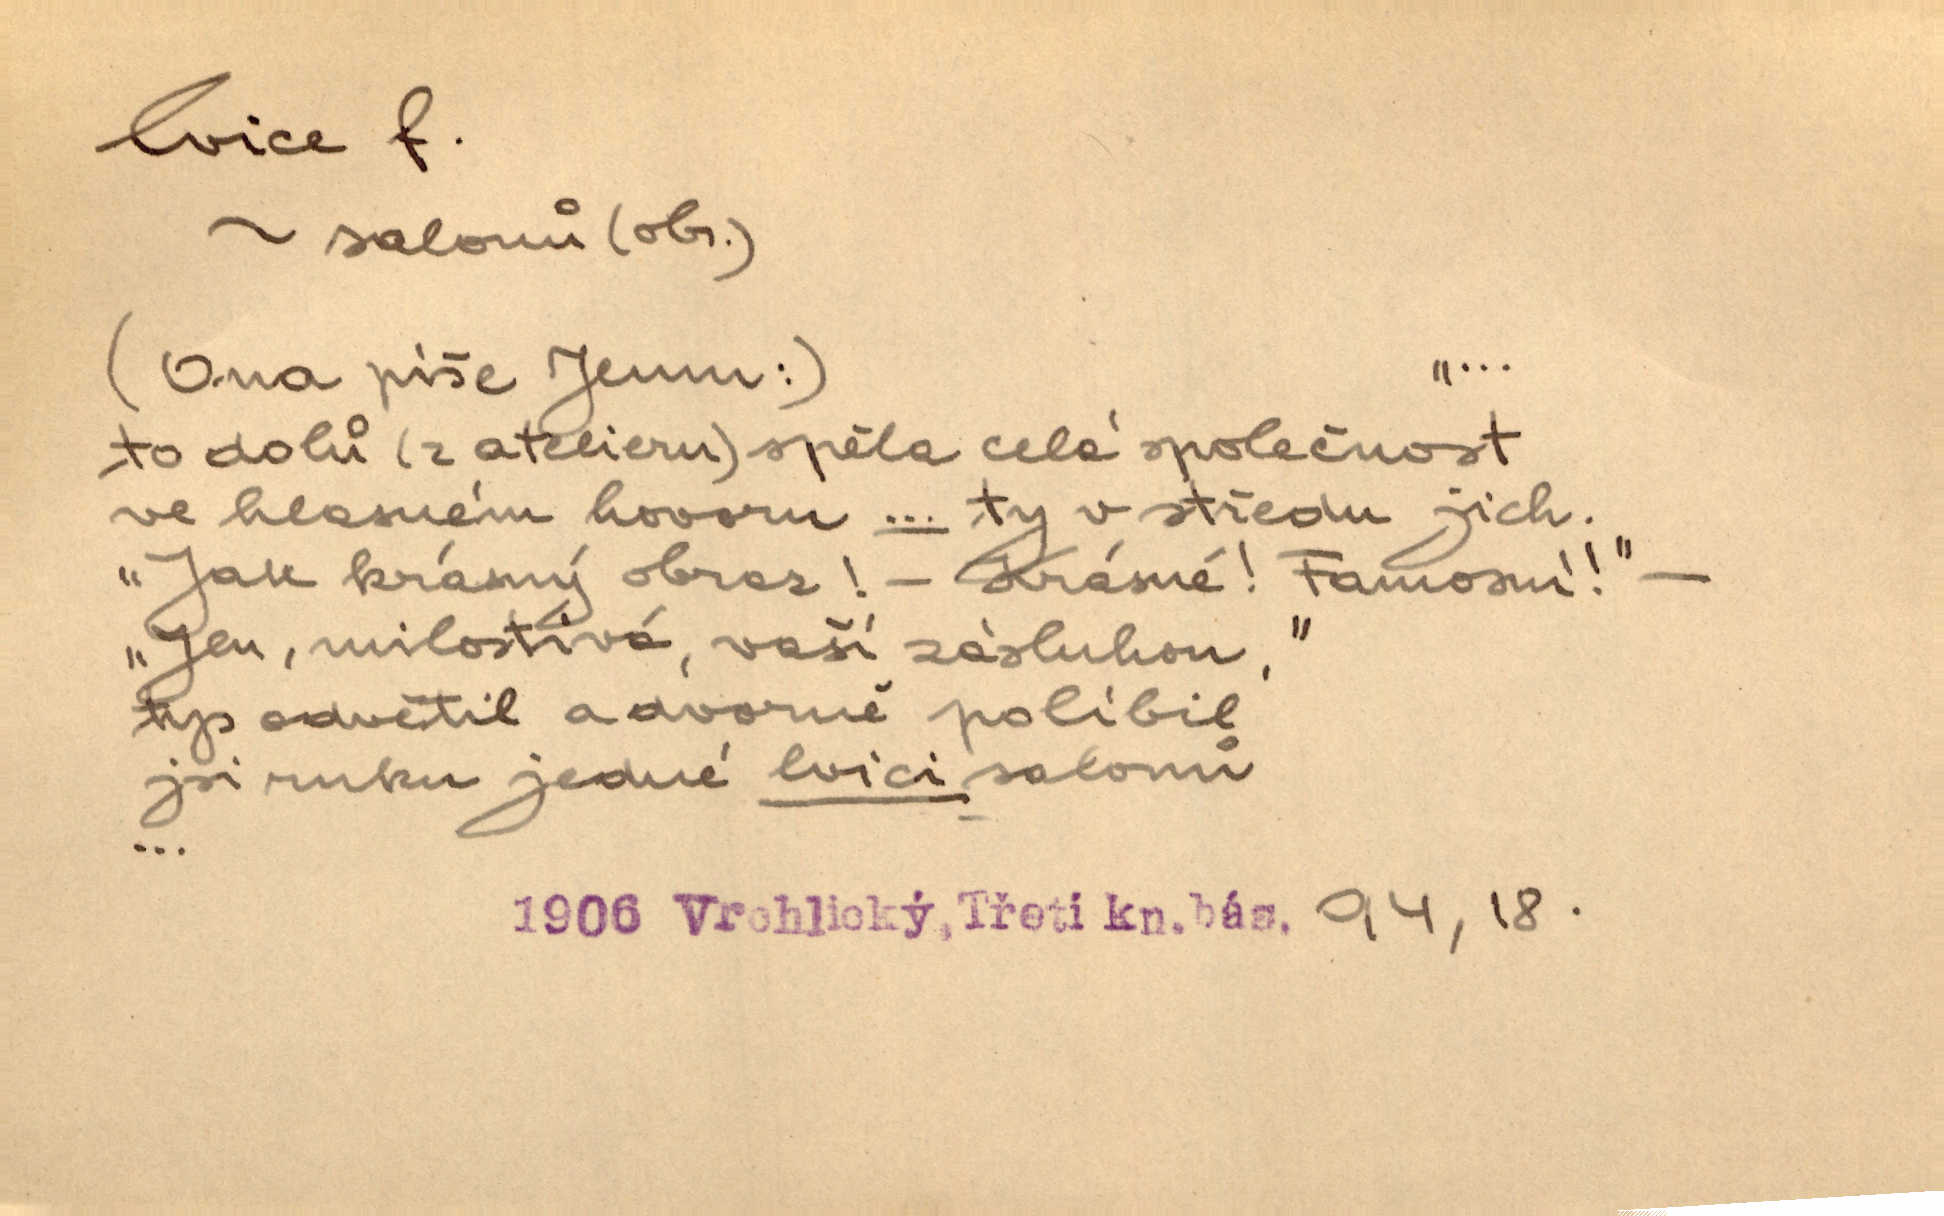 lvice f.
~ salonů (obr.)
(Ona píše Jemu:) "...
to dolů (z atelieru) spěla celá společnost
ve hlasném hovoru ... ty v středu jich.
"Jak krásný obraz! – Krásné! Famosní!" –
"Jen, milostivá, vaší zásluhou,"
tys odvětil a dvorně políbil
jsi ruku jedné lvici salonů
...
1906 Vrchlický, Třetí kn. bás. 94, 18.